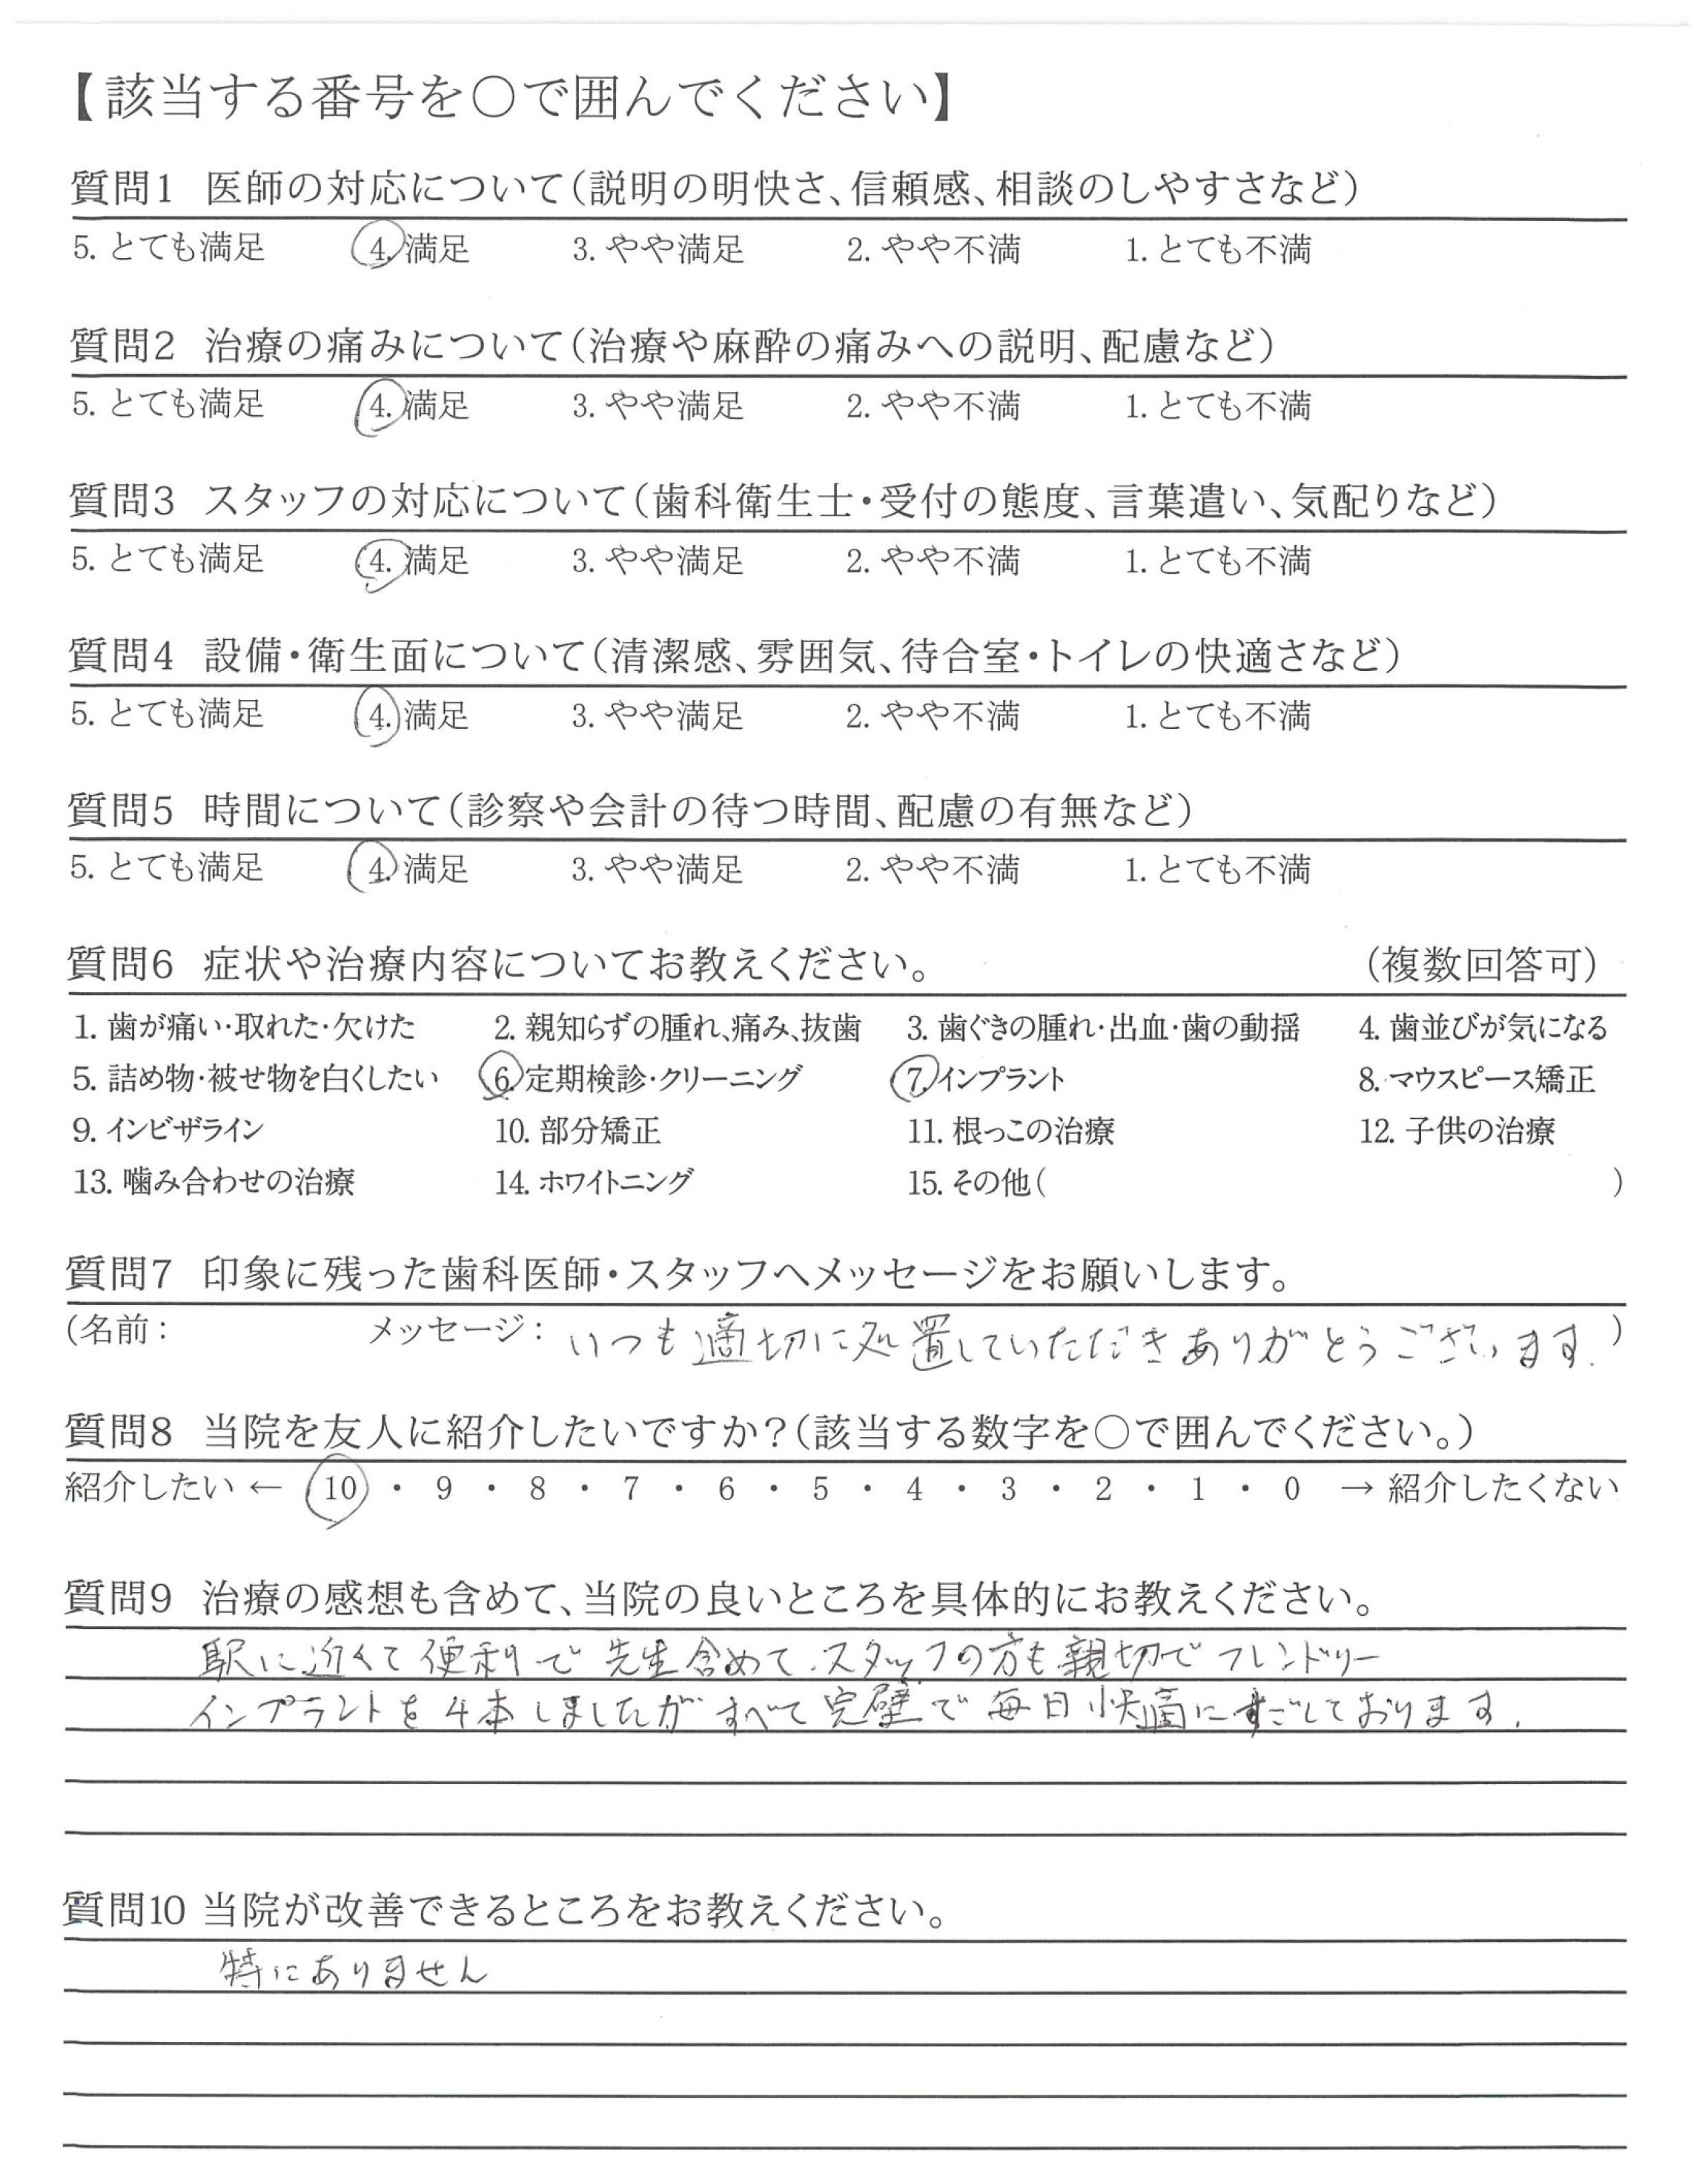 【該当する番号を〇で囲んでください】
質問1 医師の対応について(説明の明快さ、信頼感、相談のしやすさなど)
5. とても満足 4. 満足 3. やや満足 2. やや不満 1. とても不満
質問2 治療の痛みについて(治療や麻酔の痛みへの説明、配慮など)
5. とても満足 4. 満足 3. やや満足 2. やや不満 1. とても不満
質問3 スタッフの対応について(歯科衛生士・受付の態度、言葉遣い、気配りなど)
5. とても満足 4. 満足 3. やや満足 2. やや不満 1. とても不満
質問4 設備・衛生面について(清潔感、雰囲気、待合室・トイレの快適さなど)
5. とても満足 4. 満足 3. やや満足 2. やや不満 1. とても不満
質問5 時間について(診察や会計の待つ時間、配慮の有無など)
5. とても満足 4. 満足 3. やや満足 2. やや不満 1. とても不満
質問6 症状や治療内容についてお教えください。 (複数回答可)
1. 歯が痛い・取れた・欠けた 2. 親知らずの腫れ、痛み、抜歯 3. 歯ぐきの腫れ・出血・歯の動揺 4. 歯並びが気になる
5. 詰め物・被せ物を白くしたい 6. 定期検診・クリーニング 7. インプラント 8. マウスピース矯正
9. インビザライン 10. 部分矯正 11. 根っこの治療 12. 子供の治療
13. 噛み合わせの治療 14. ホワイトニング 15. その他( )
質問7 印象に残った歯科医師・スタッフへメッセージをお願いします。
(名前: メッセージ: いつも適切に処置していただきありがとうございます.)
質問8 当院を友人に紹介したいですか?(該当する数字を〇で囲んでください。)
紹介したい ← 10 ・ 9 ・ 8 ・ 7 ・ 6 ・ 5 ・ 4 ・ 3 ・ 2 ・ 1 ・ 0 → 紹介したくない
質問9 治療の感想も含めて、当院の良いところを具体的にお教えください。
駅に近くて便利で 先生含めて.スタッフの方も親切でフレンドリー
インプラントを4本しましたがすべて完璧で毎日快適にすごしております.
質問10 当院が改善できるところをお教えください。
特にありません